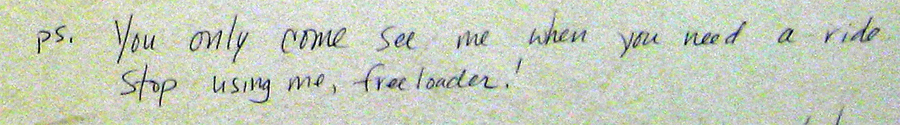 ps. You only come see me when you need a ride.
Stop using me, freeloader!